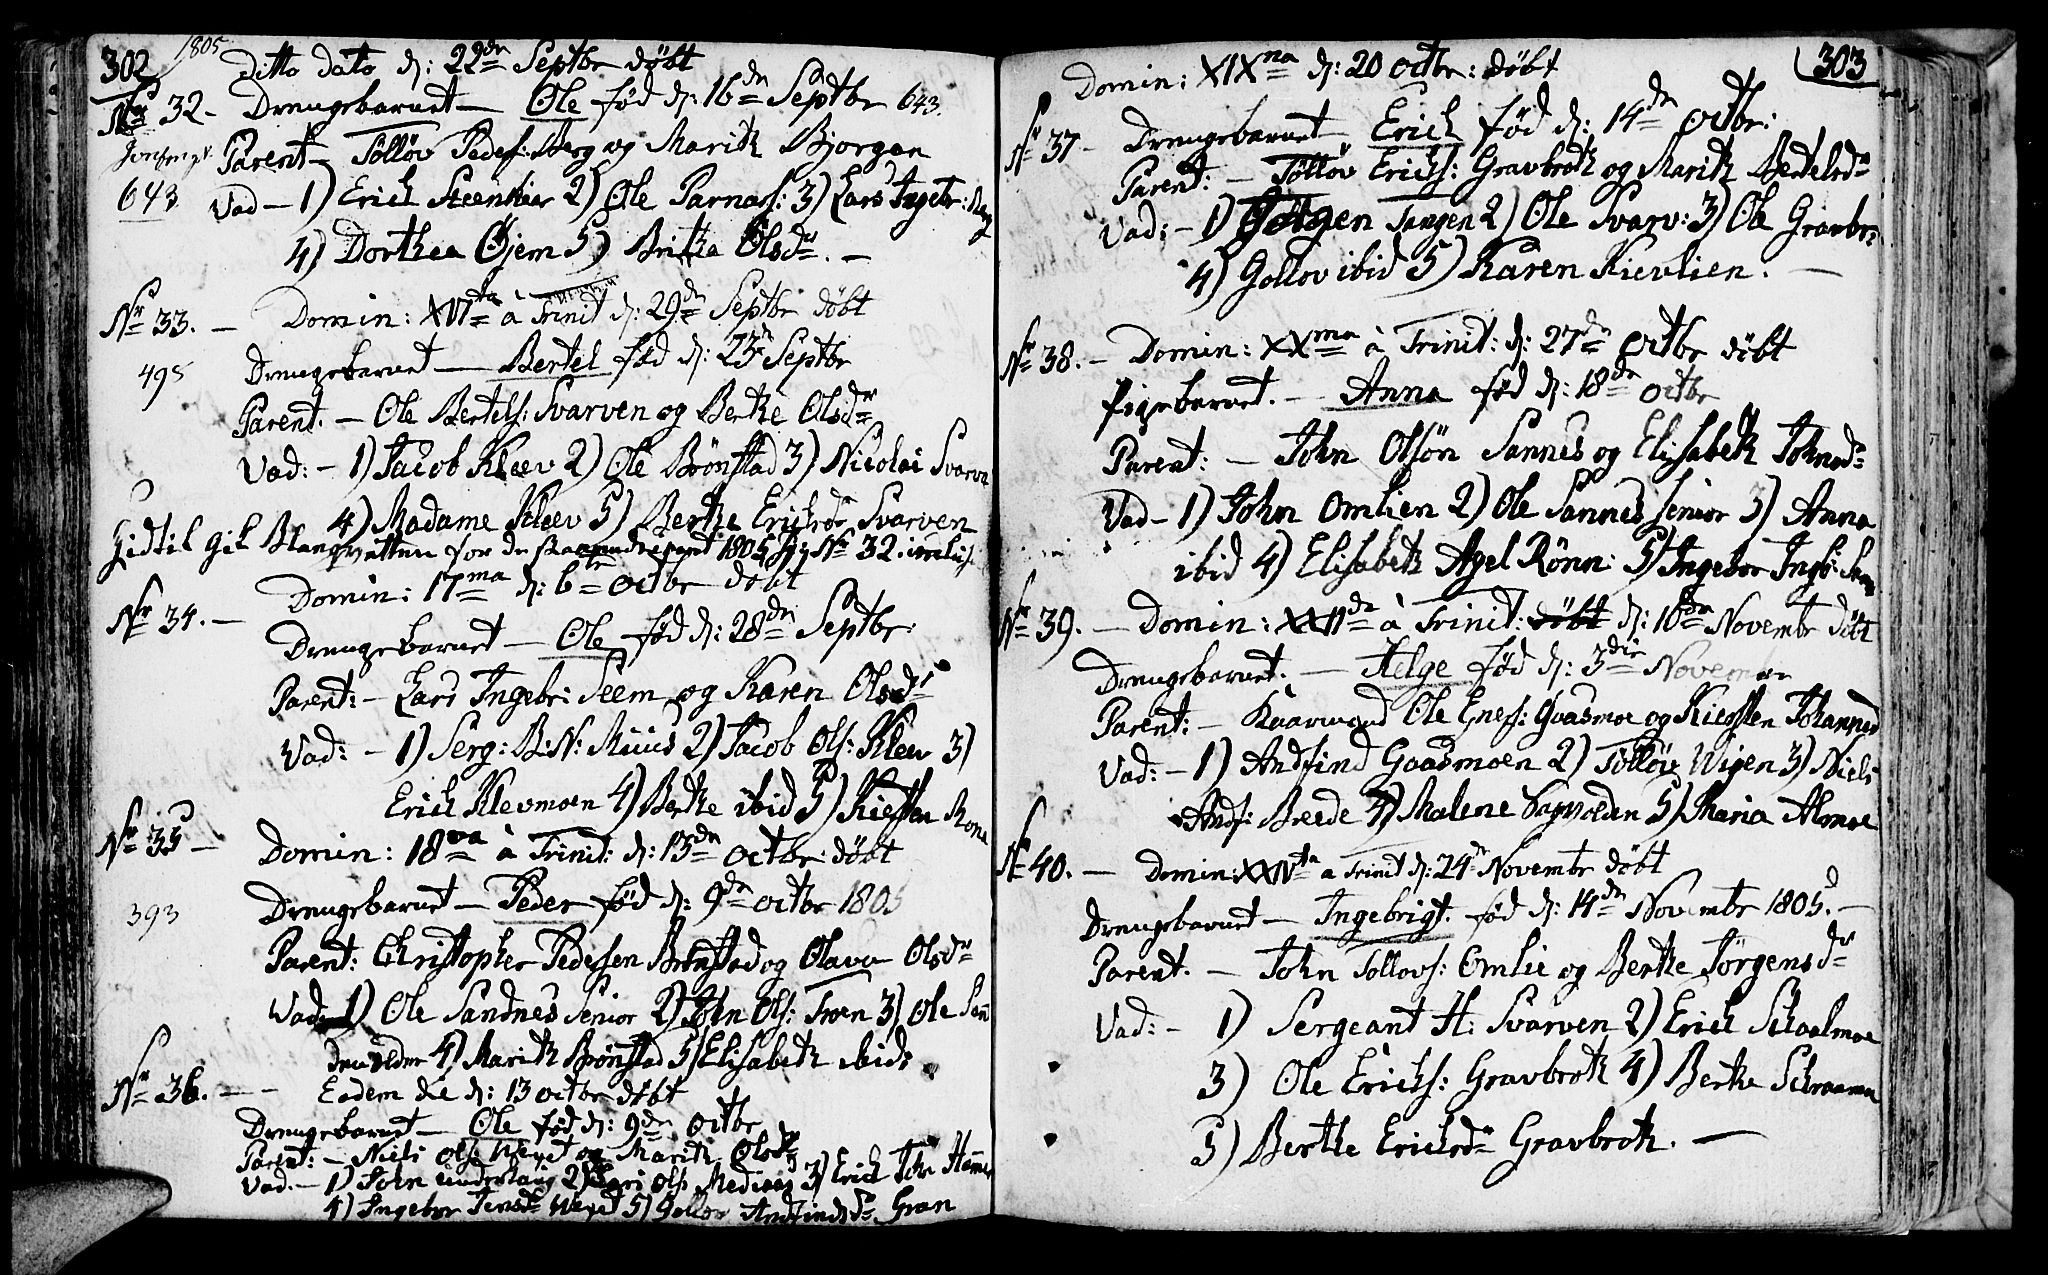 302 1805
Ditto dato d: 22de Septbr döbt
Nr 32 - Drengebarnet - Ole föd d: 16de Septbr 643.
Parent - Tölløv Peders: Berg og Marith Bjorgan
643 Vad - 1) Erich Steenkier 2) Ole Parnas: 3) Lars Ingebr: Berg
4) Dorthea Øjem 5) Britha Olsdr. -
Nr 33. - Domin: XVIta à Trinit d: 29de Septbr döbt
495 Drengebarnet - Bertel föd d: 23de Septbr
Parent. - Ole Bertels: Svarven og Berthe Olsdr
Vad: - 1) Jacob Kleev 2) Ole Brönstad 3) Nicolai Svarve
4) Madame Kleev 5) Berthe Erichsdr Svarven
hidtil gik for de 1805 Nr 32. inclus:
Nr 34. - Domin: 17ma d: 6te octbr döbt
Drengebarnet - Ole föd d: 28de Septbr:
Parent: - Lars Ingebr: Seem og Karen Olsdr
Vad: - 1) Serg: B: N: Muus 2) Jacob Ols: Kleev 3)
Erich Klevmoen 4) Berthe ibid 5) Kiesten Mona
Nr 35 - Domin: 18va à Trinit: d: 13de octbr: döbt
393 Drengebarnet - Peder föd d: 9de octbr 1805
Parent: Christopher Pedersen Brønstad og Olava Olsdr
Vad: 1) Ole Sandnes Senior 2) John Ols: Troen 3) Ole San
den elder 4) Marith Brönstad 5) Elisabeth ibid:
Nr 36. - - Eadem die d: 13 octbr döbt
Drengebarnet - Ole föd d: 9de octbr
Parent: - Niels Ols: og Marith Olsdr
Vad. - 1) John underlaug 2) Ols: Mediaas 3) Erich
4) Ingebor Jensdr 5) Gollov Andfindsdr Gran
303
Domin: XIXna d: 20 octbr: döbt
Nr 37 - Drengebarnet - Erich föd d: 14de octbr:
Parent: - Tölløv Erichs: Gravbrot og Marith Bertelsdr
Vad: - 1) Jørgen Tangen 2) Ole Svarv: 3) Ole Gravbr:
4) Gollov ibid 5) Karen Kievlien. -
Nr 38. - Domin: XXma à Trinit: d: 27de octbr döbt
Pigebarnet. - Anna föd d: 18de octbr
Parent: - John Olsön Sannes og Elisabeth Johnsdr
Vad - 1) John Omlien 2) Ole Sannes Senior 3) Anna
ibid 4) Elisabeth Agel Rönn: 5) Ingebor
Nr 39. - Domin: XXIIde à Trinit: döbt d: 10de Novembr döbt
Drengebarnet. - Helge föd d: 3die November
Parent: - Ole Enes: Gvasmoe og Kiersten Johannesd
Vad: - 1) Andfind Gaasmoen 2) Tölløv Wigen 3) Niels
Andf: Breede 4) Malene Sagvolden 5) Maria Almoe
Nr 40. - Domin: XXIVta a Trinit d: 24de Novembr döbt
Drengebarnet - Ingebrigt. föd d: 14de Novembr 1805. -
Parent. - John Tollovs: Omlie og Berthe Jörgensdr
Vad: - 1) Sergeant H: Svarven 2) Erich Schaalmoe
3) Ole Erichs: Gravbrot 4) Berthe
5) Berthe Erichsdr Gravbrot. -